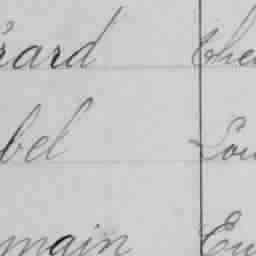 érard Ches
bel Lou
main Eu